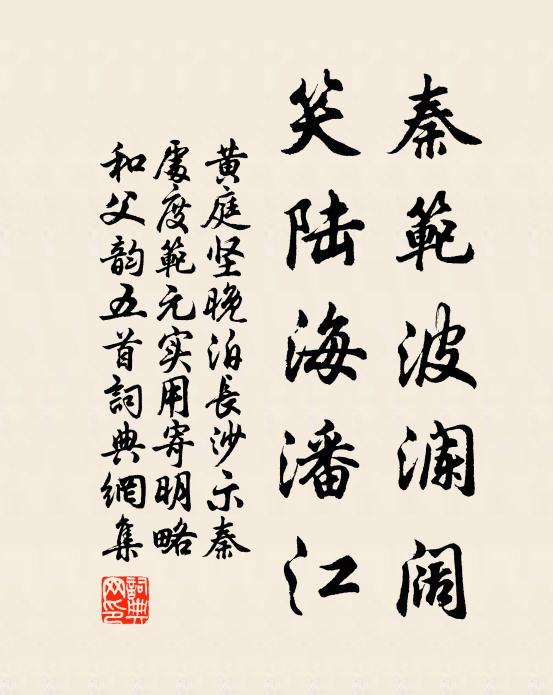 秦範波澜阔
笑陆海潘江
黄庭坚晚泊長沙示秦
處度範元实用寄明略
和父韵五首詞典網集
詞典网印